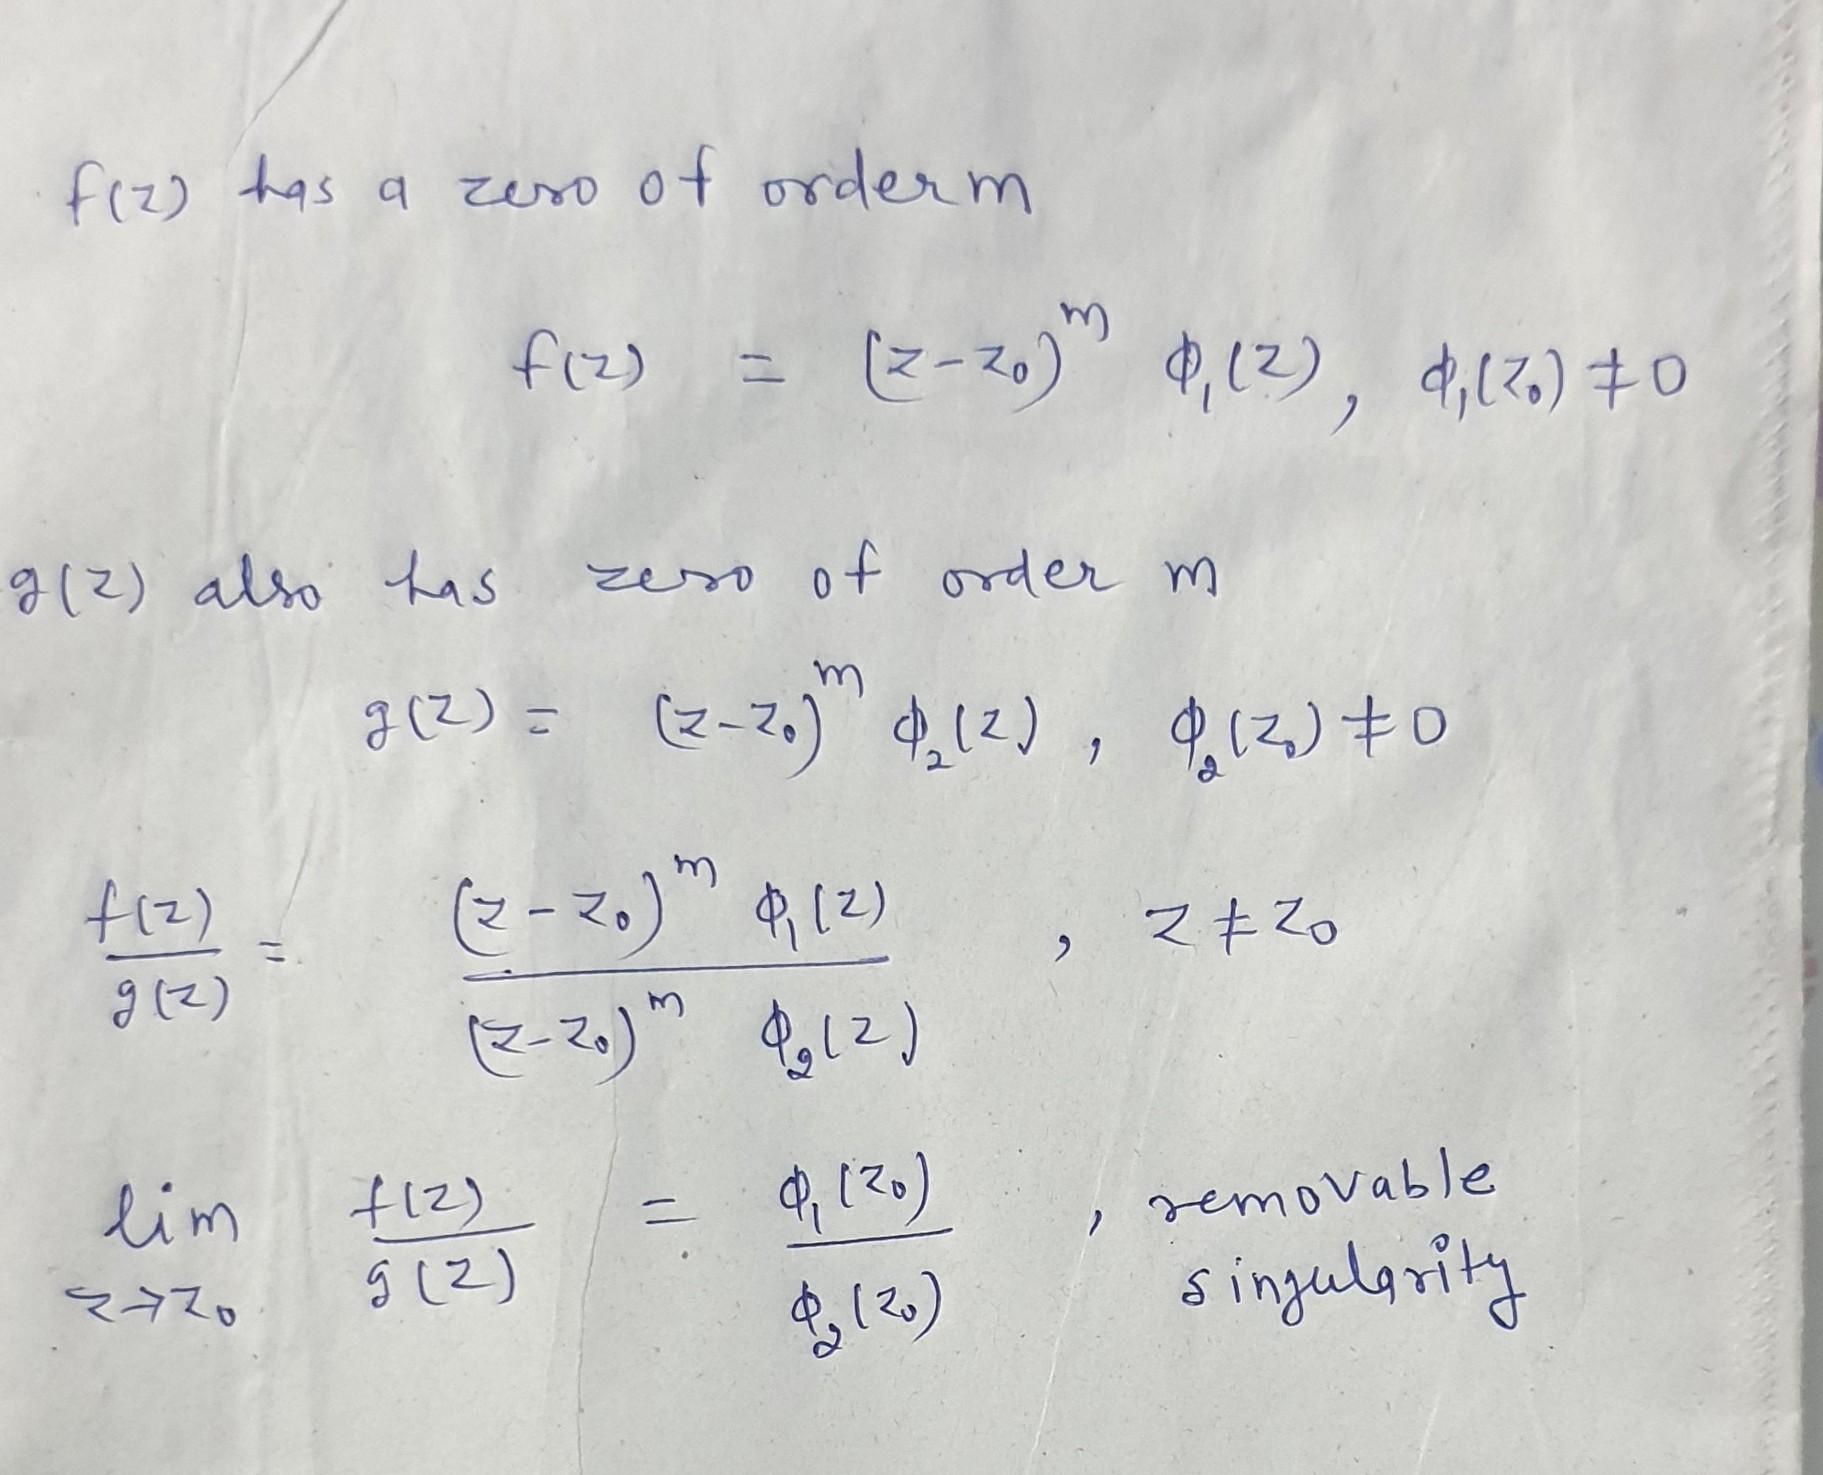 f(z) has a zero of order m
f(z) = (z-z₀)ᵐ φ₁(z), φ₁(z₀) ≠ 0
g(z) also has zero of order m
g(z) = (z-z₀)ᵐ φ₂(z), φ₂(z₀) ≠ 0
f(z)/g(z) = (z-z₀)ᵐ φ₁(z) / (z-z₀)ᵐ φ₂(z) , z ≠ z₀
lim z→z₀ f(z)/g(z) = φ₁(z₀)/φ₂(z₀) , removable
singularity